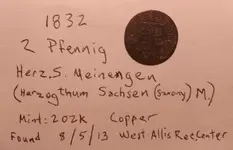 1832
2 Pfennig
Herz. S. Meinengen
(Herzogthum Sachsen (Saxony) M.)
Mint: 202K Copper
Found 8/5/13 West Allis Rec Center